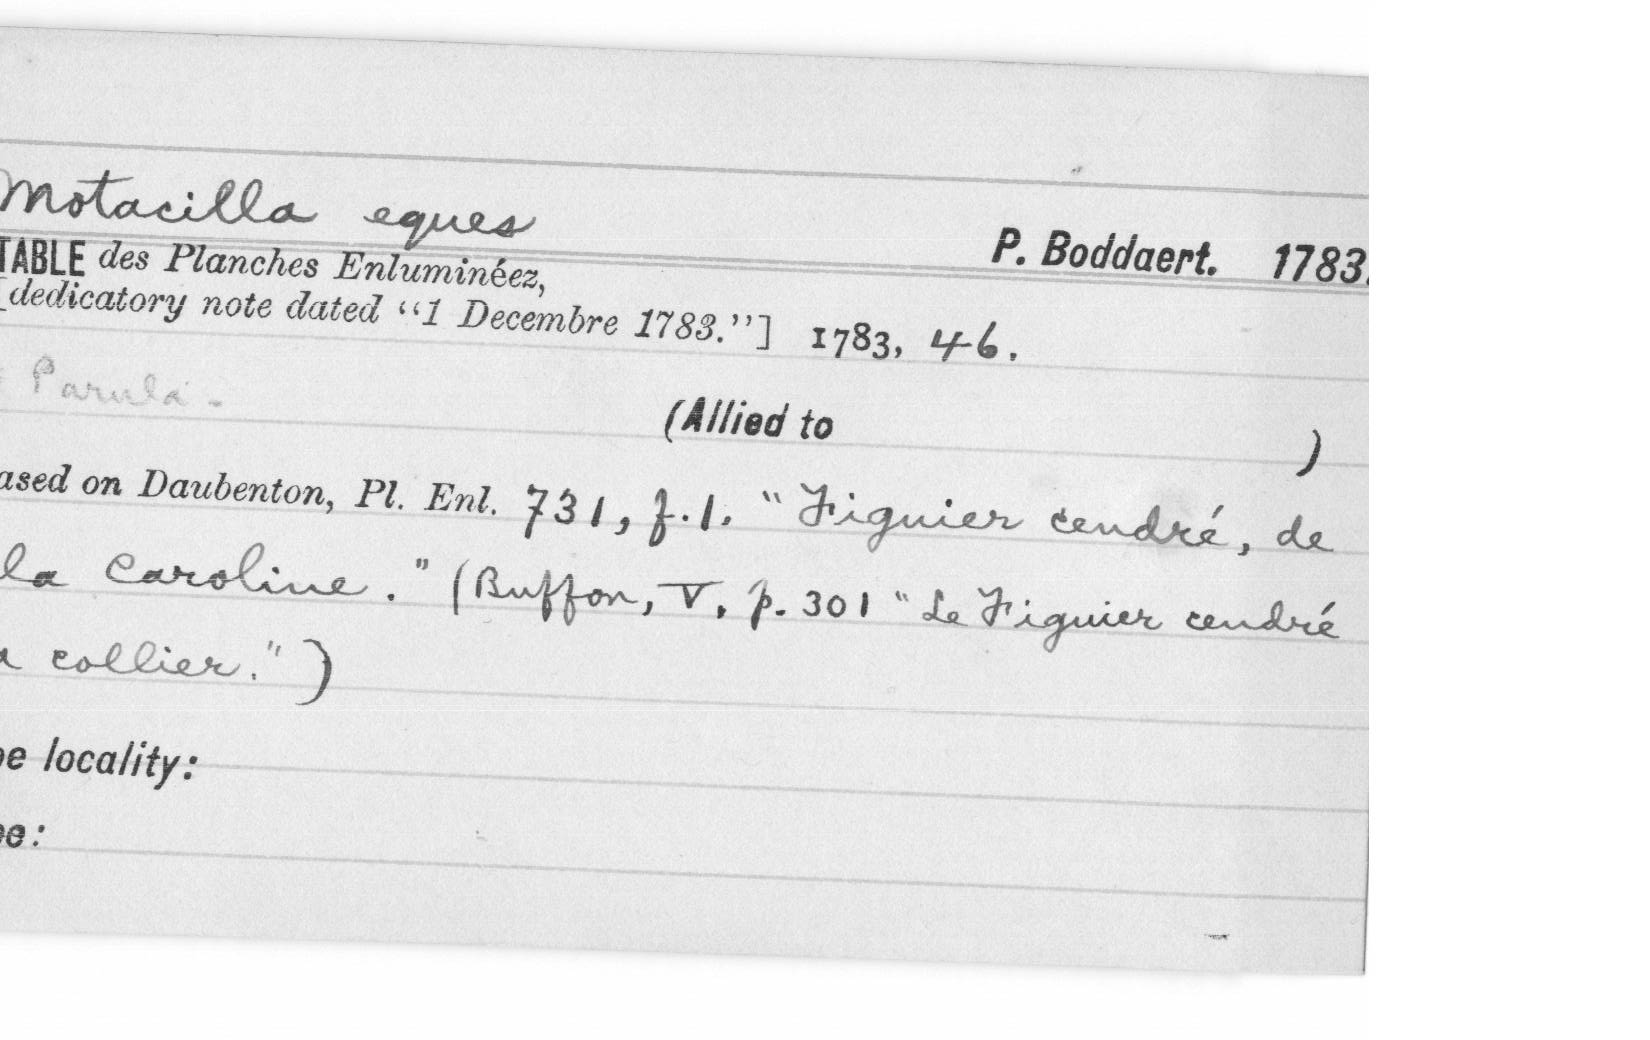 Motacilla eques
P. Boddaert. 1783.
TABLE des Planches Enluminéez,
[dedicatory note dated "1 Decembre 1783."] 1783, 46.
Parula -
(Allied to )
ased on Daubenton, Pl. Enl. 731, f.1. "Figuier cendré, de
la Caroline." (Buffon, V, p. 301 "Le Figuier cendré
a collier.")
pe locality:
pe: